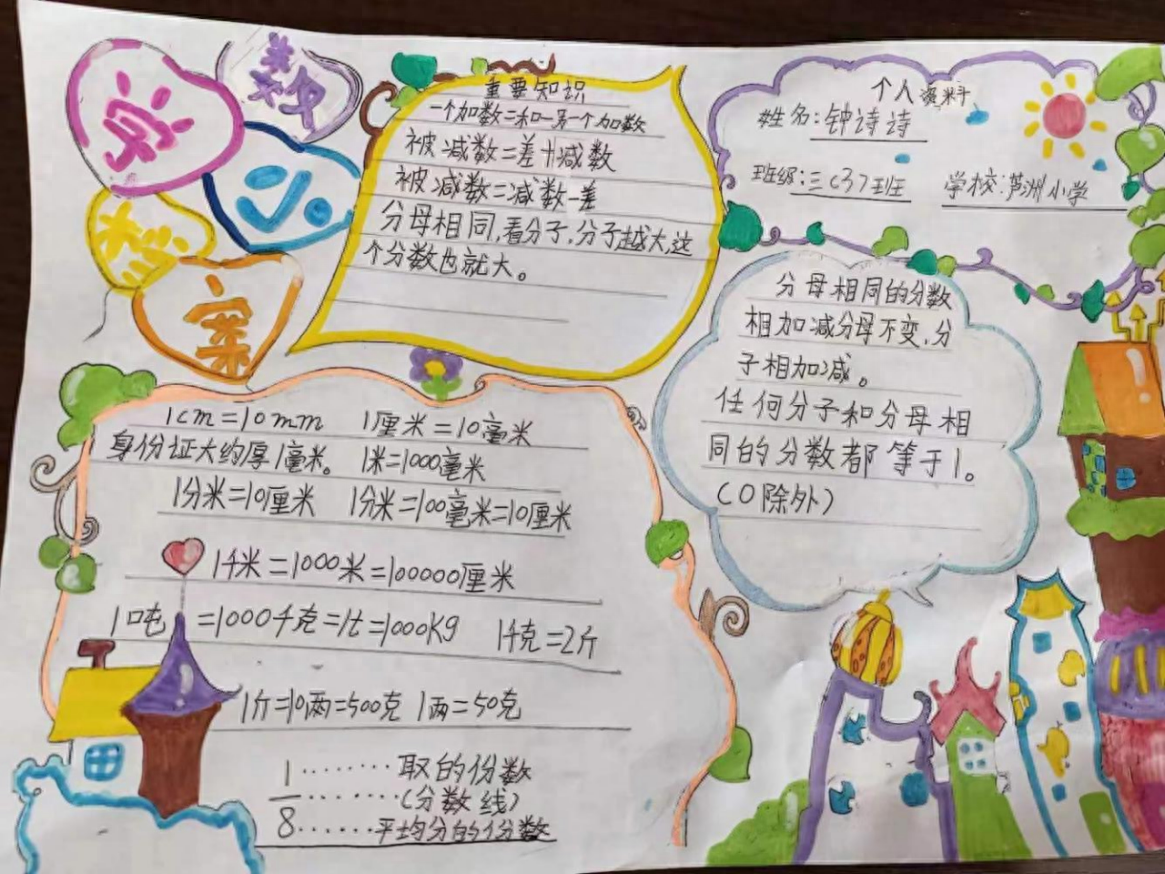 数
学
小
档
案
重要知识
一个加数=和-另一个加数
被减数=差+减数
被减数=减数-差
分母相同,看分子,分子越大,这
个分数也就大。
个人资料
姓名:钟诗诗
班级:三(3)班 学校:芦洲小学
分母相同的分数
相加减分母不变,分
子相加减。
任何分子和分母相
同的分数都等于1。
(0除外)
1cm=10mm 1厘米=10毫米
身份证大约厚1毫米。 1米=1000毫米
1分米=10厘米 1分米=100毫米=10厘米
1千米=1000米=100000厘米
1吨=1000千克=1t=1000Kg 1千克=2斤
1斤=10两=500克 1两=50克
1........取的份数
—........(分数线)
8......平均分的份数